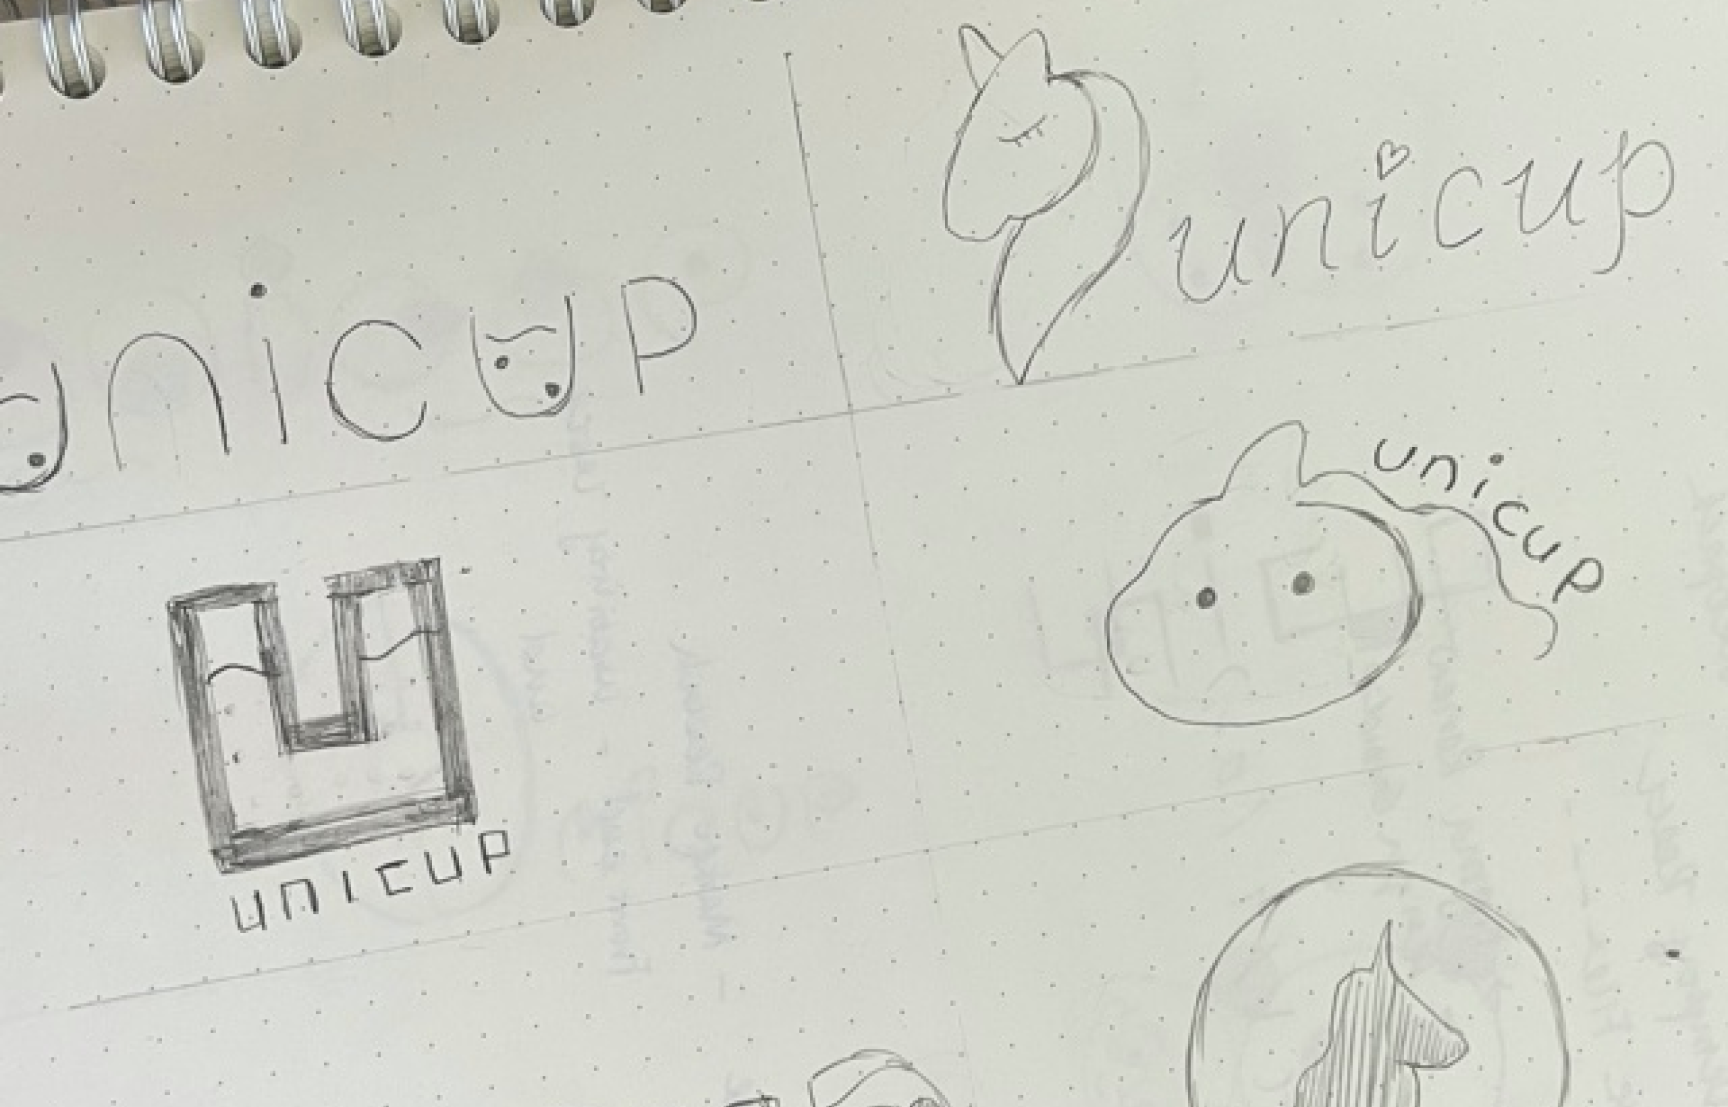 unicup
unicup
unicup
UNICUP